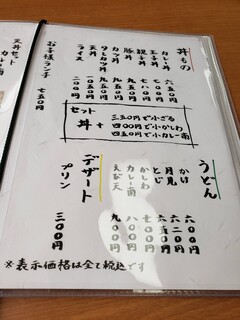 丼もの
カレー丼 六五〇円
玉子丼
親子丼 七八〇円
豚丼
カツ丼 九五〇円
タレカツ丼
天丼
ライス 二〇〇円
お子様ランチ 七五〇円
セット
丼 +
三五〇円で小ざる
四〇〇円で小かしわ
四五〇円で小カレー南
うどん
かけ 六〇〇円
月見 六五〇円
とじ
かしわ 七〇〇円
カレー南 八〇〇円
えび天 九〇〇円
デザート
プリン 三〇〇円
※表示価格は全て税込です
天丼セット
カレー南